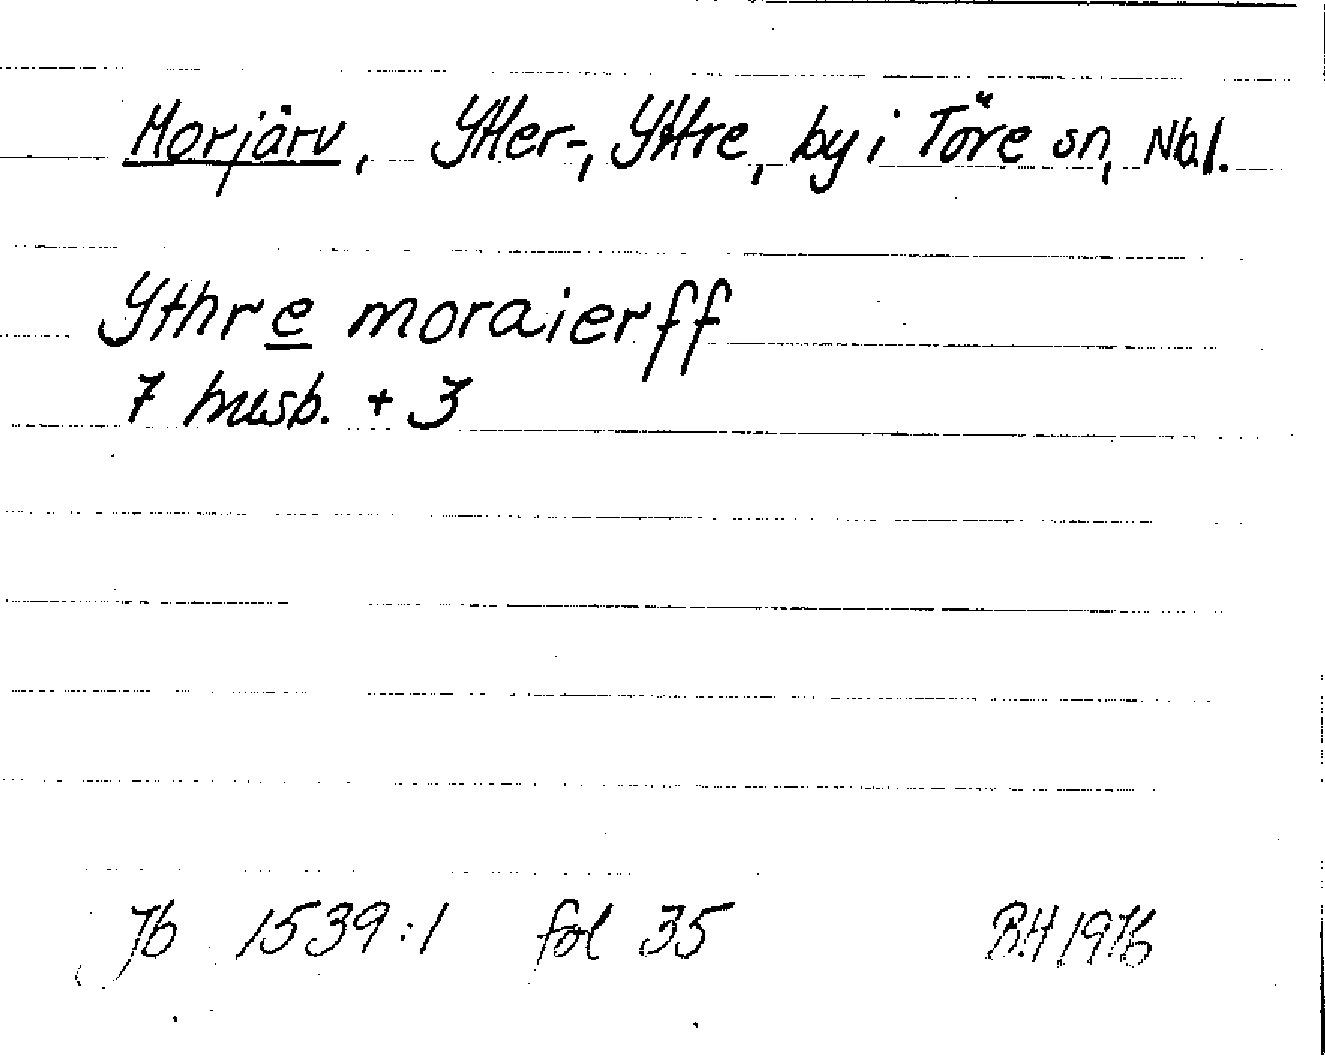 Morjärv, Ytter-, Yttre, by i Töre sn, Nb.l.
Ythre moraierff
7 husb. + 3
Jb 1539:1 fol 35 B.H 1976